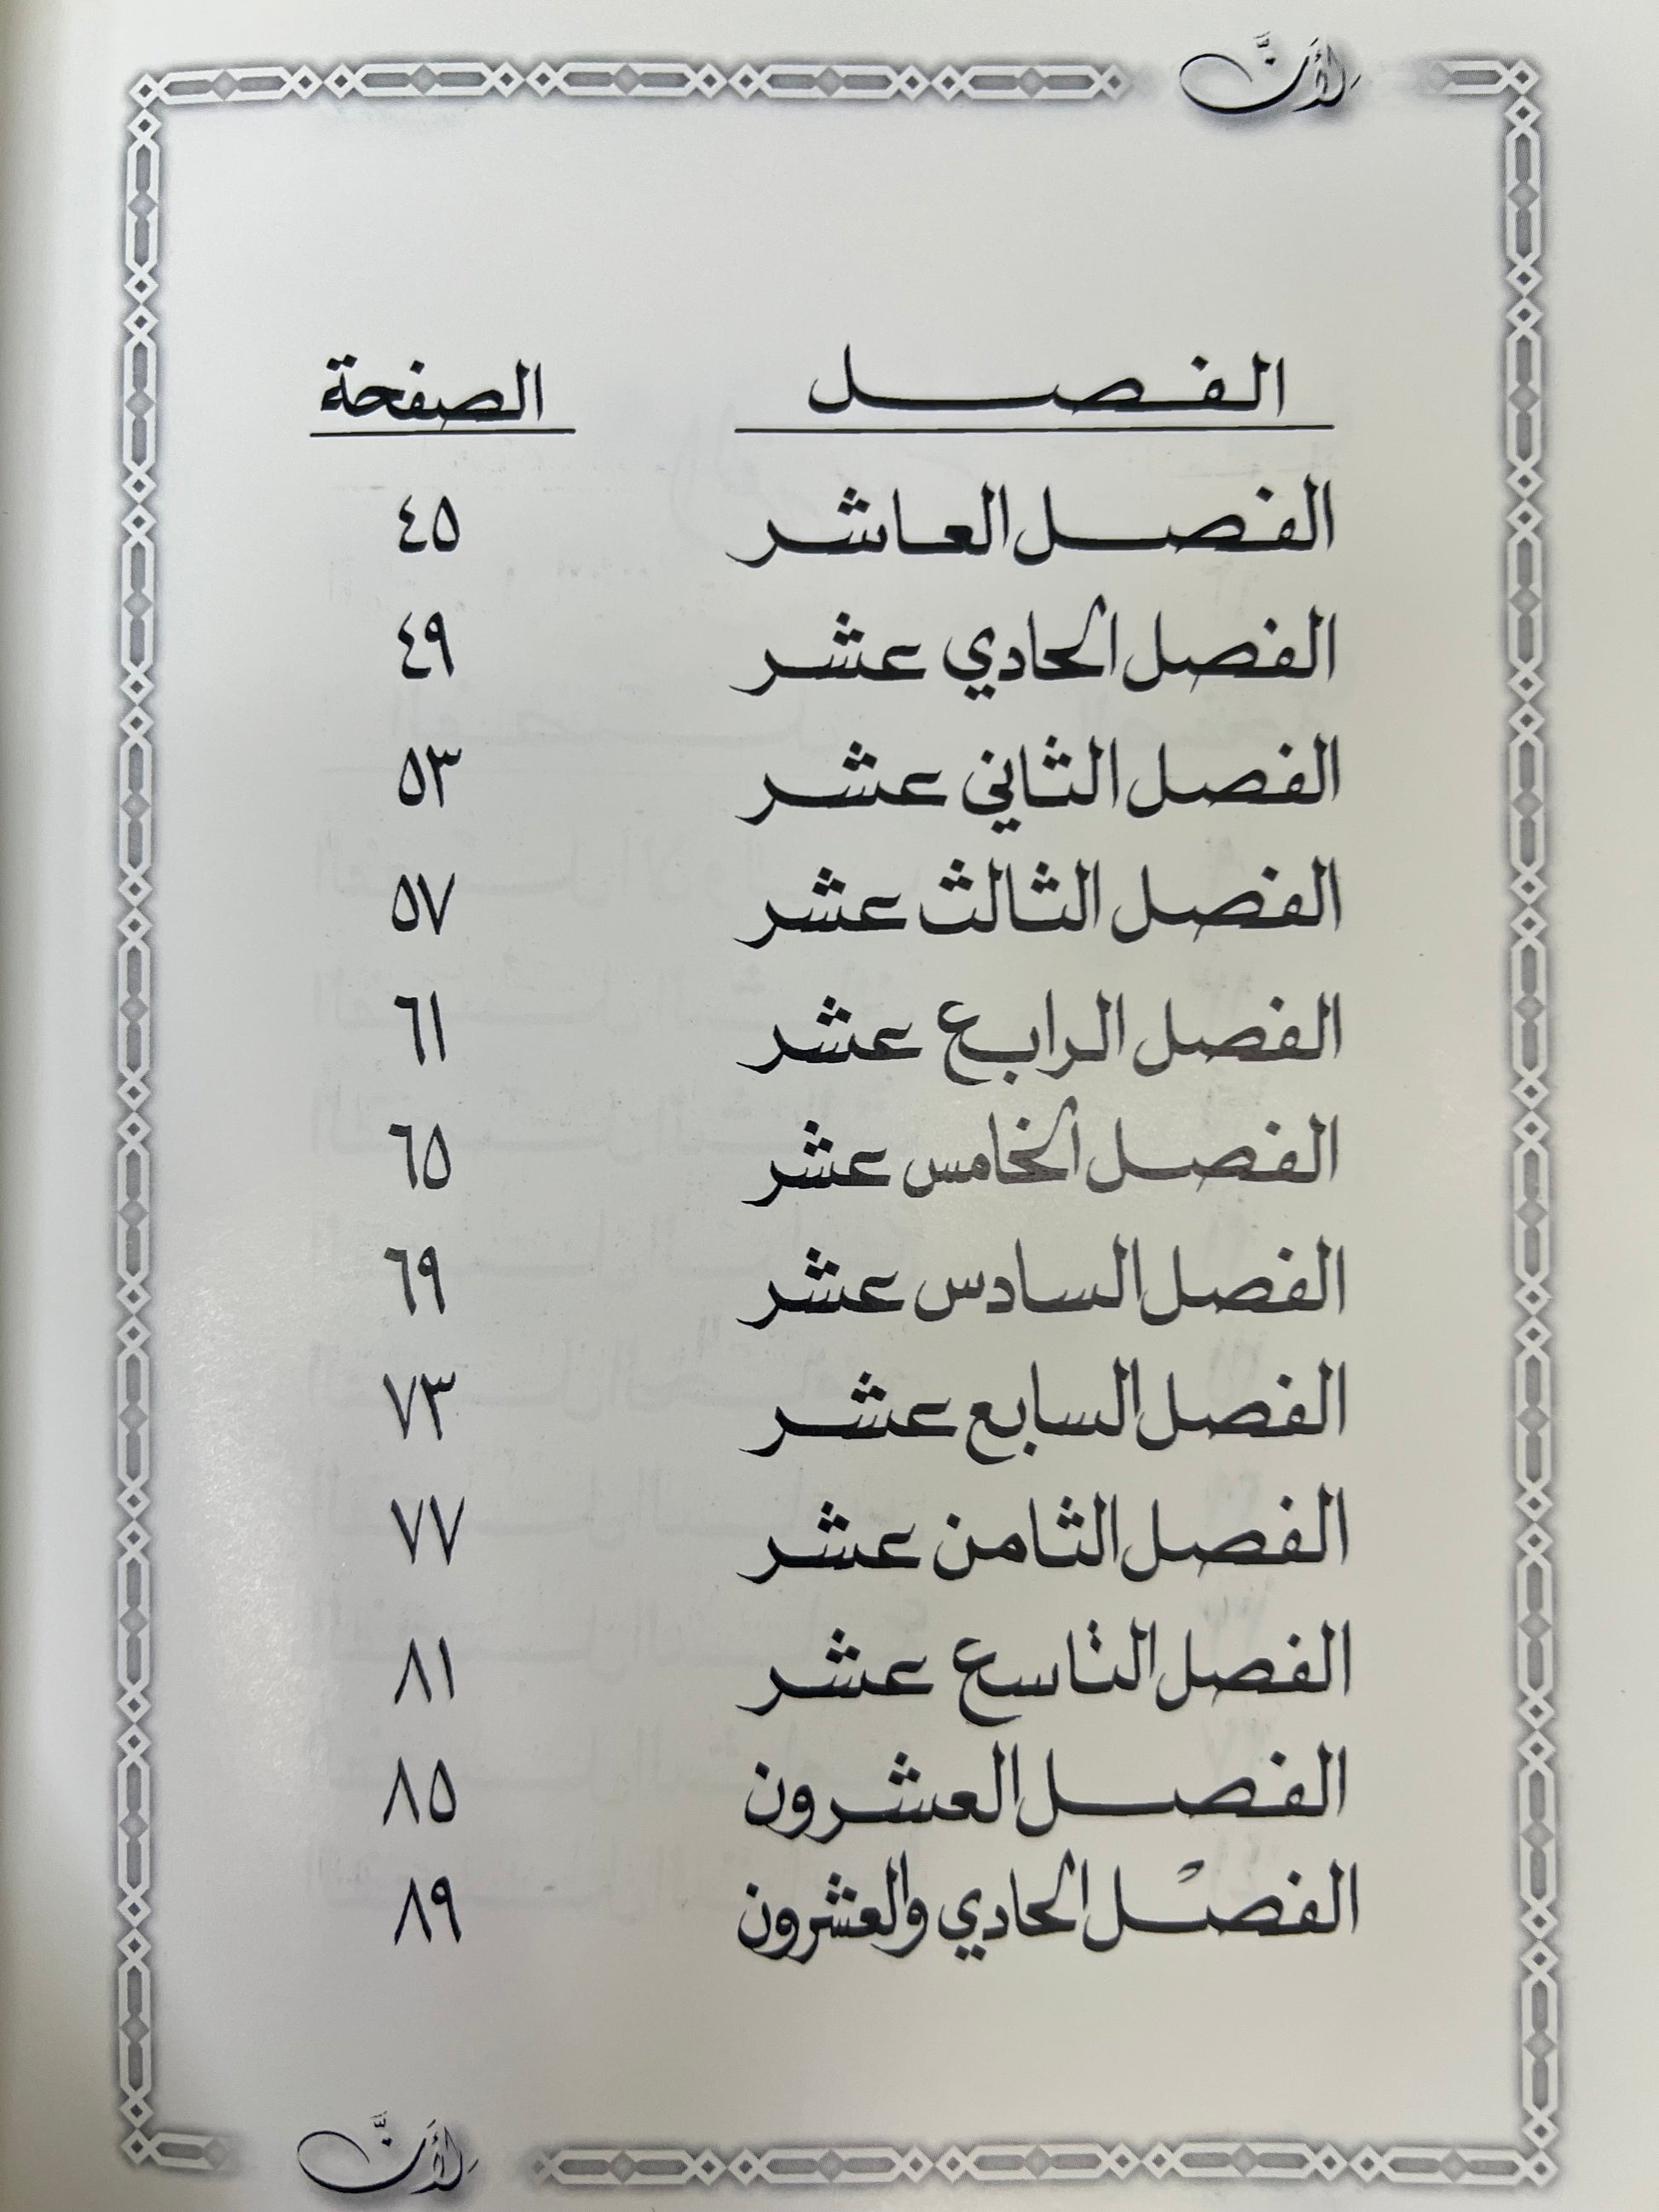 لأنَّ
الفصل الصفحة
الفصل العاشر ٤٥
الفصل الحادي عشر ٤٩
الفصل الثاني عشر ٥٣
الفصل الثالث عشر ٥٧
الفصل الرابع عشر ٦١
الفصل الخامس عشر ٦٥
الفصل السادس عشر ٦٩
الفصل السابع عشر ٧٣
الفصل الثامن عشر ٧٧
الفصل التاسع عشر ٨١
الفصل العشرون ٨٥
الفصل الحادي والعشرون ٨٩
لأنَّ